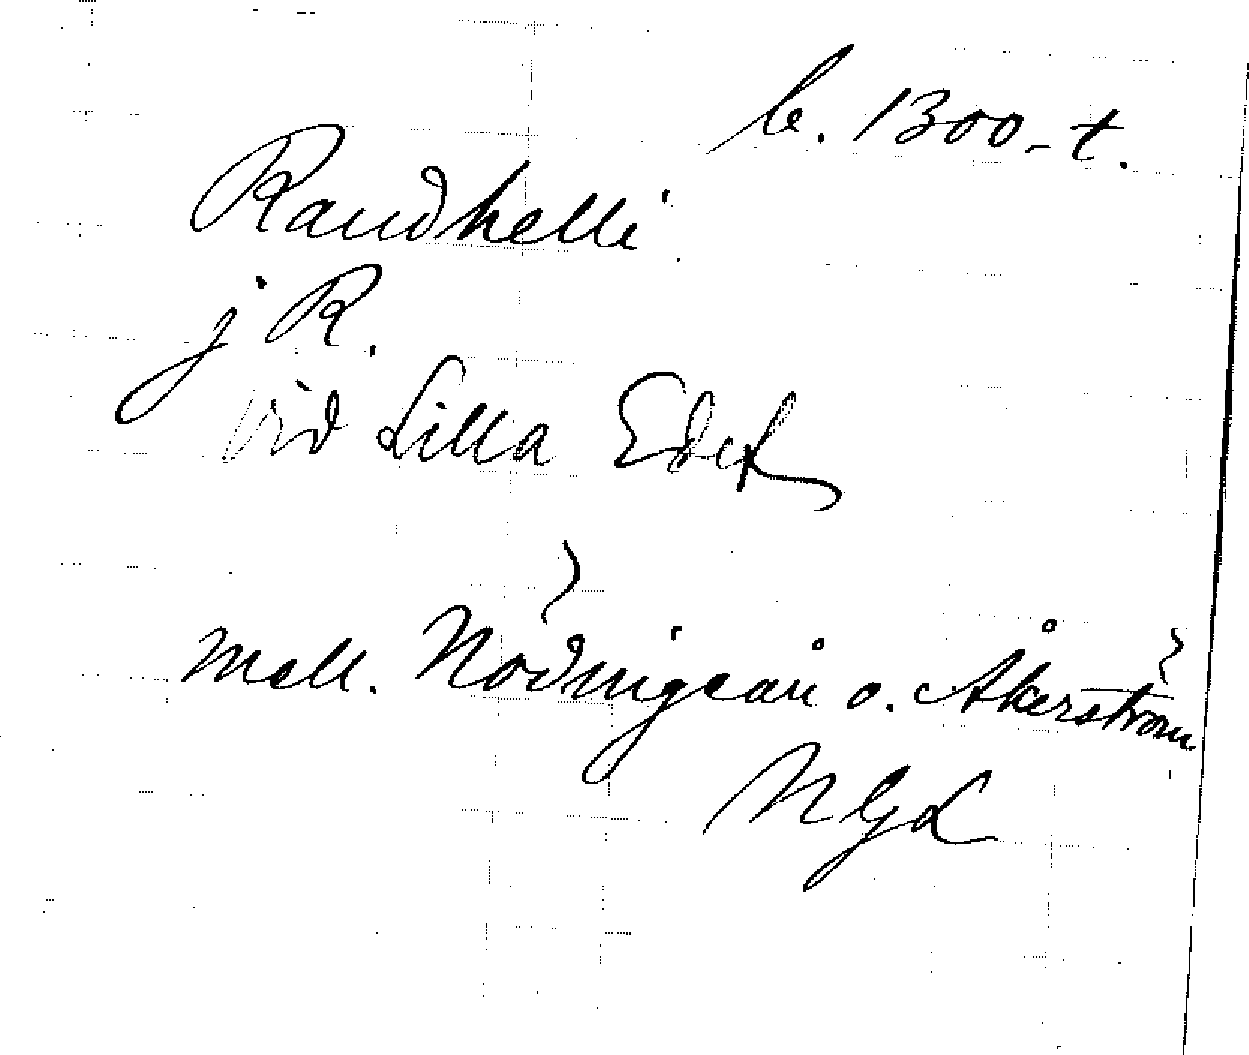 b. 1300-t.
Raudhelli
j R.
vid Lilla Edet
mell. Nödingeån o. Åkerström
NGL